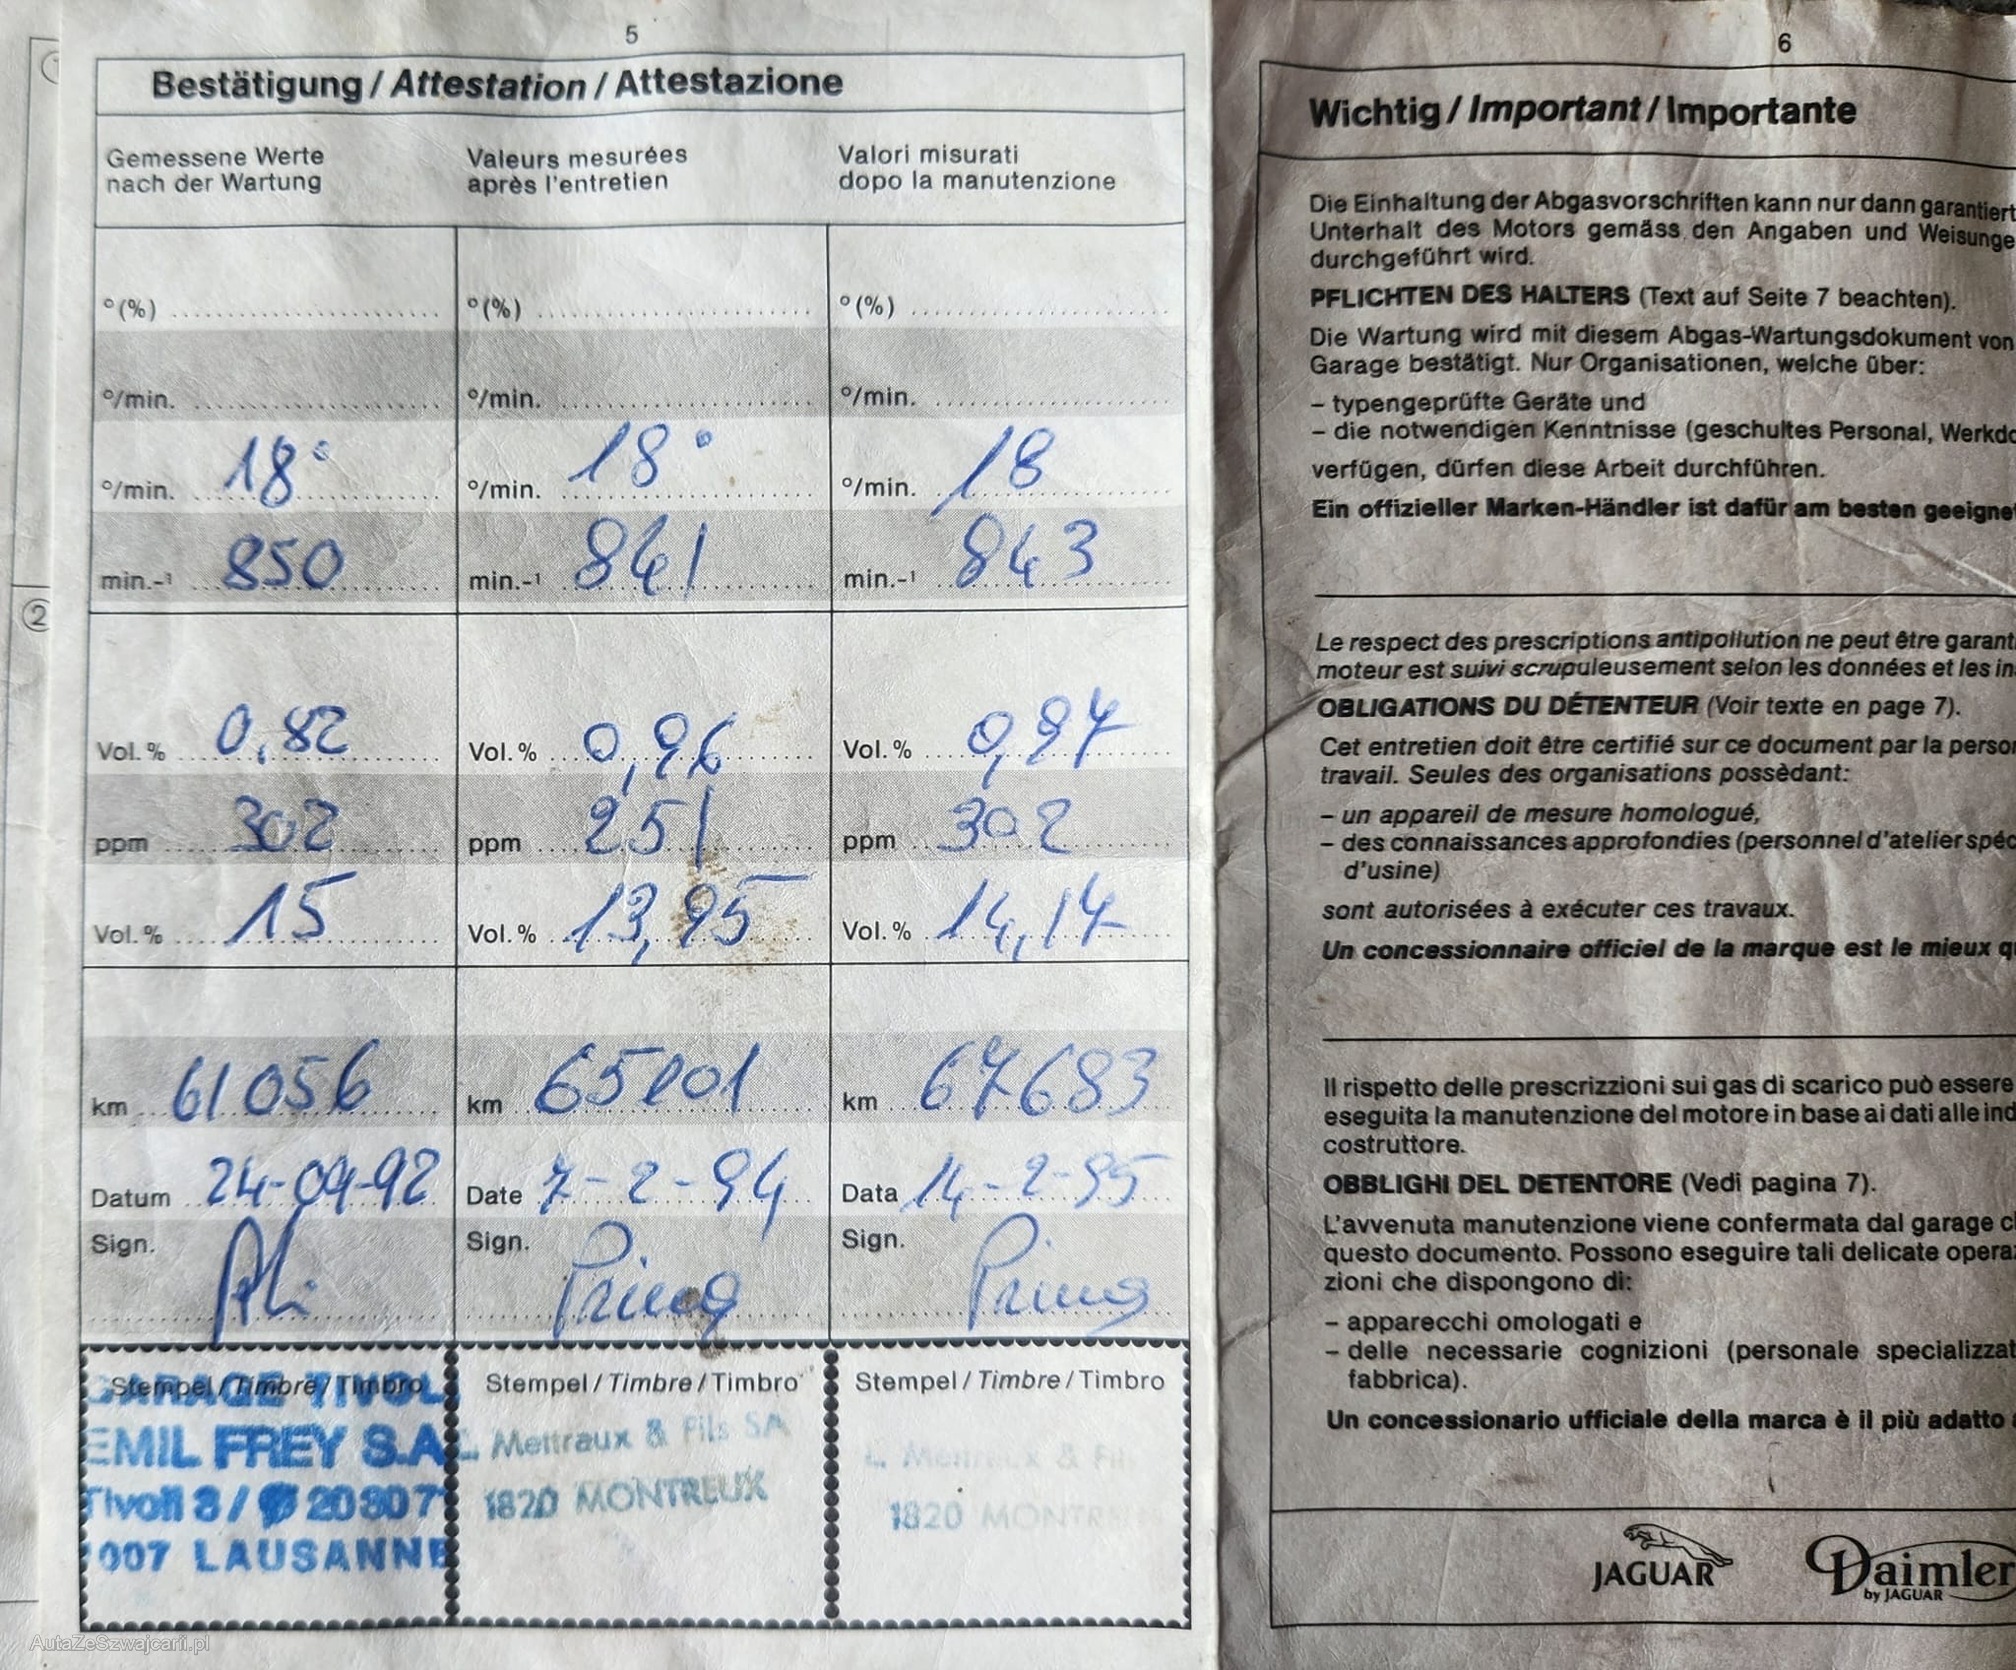 5
Bestätigung / Attestation / Attestazione
Gemessene Werte
nach der Wartung
Valeurs mesurées
après l'entretien
Valori misurati
dopo la manutenzione
°(%) °(%) °(%)
°/min. °/min. °/min.
°/min. 18° °/min. 18° °/min. 18
min.-¹ 850 min.-¹ 841 min.-¹ 843
Vol.% 0,82 Vol.% 0,96 Vol.% 0,97
ppm 302 ppm 251 ppm 302
Vol.% 15 Vol.% 13,95 Vol.% 14,14
km 61056 km km 67683
Datum 24-09-92 Date 7-2-94 Data 14-2-95
Sign. Sign. Sign.
Stempel / Timbre / Timbro Stempel / Timbre / Timbro Stempel / Timbre / Timbro
GARAGE TIVOLI
EMIL FREY S.A.
Tivoli 3 / 20 30 71
1007 LAUSANNE
L. Mettraux & Fils SA
1820 MONTREUX
L. Mettraux & Fils
1820 MONTREUX
2
6
Wichtig / Important / Importante
Die Einhaltung der Abgasvorschriften kann nur dann garantiert
Unterhalt des Motors gemäss den Angaben und Weisunge
durchgeführt wird.
PFLICHTEN DES HALTERS (Text auf Seite 7 beachten).
Die Wartung wird mit diesem Abgas-Wartungsdokument von
Garage bestätigt. Nur Organisationen, welche über:
– typengeprüfte Geräte und
– die notwendigen Kenntnisse (geschultes Personal, Werkdo
verfügen, dürfen diese Arbeit durchführen.
Ein offizieller Marken-Händler ist dafür am besten geeignet
Le respect des prescriptions antipollution ne peut être garant
moteur est suivi scrupuleusement selon les données et les in
OBLIGATIONS DU DÉTENTEUR (Voir texte en page 7).
Cet entretien doit être certifié sur ce document par la person
travail. Seules des organisations possèdant:
– un appareil de mesure homologué,
– des connaissances approfondies (personnel d'atelier spéc
d'usine)
sont autorisées à exécuter ces travaux.
Un concessionnaire officiel de la marque est le mieux q
Il rispetto delle prescrizzioni sui gas di scarico può essere
eseguita la manutenzione del motore in base ai dati alle ind
costruttore.
OBBLIGHI DEL DETENTORE (Vedi pagina 7).
L'avvenuta manutenzione viene confermata dal garage c
questo documento. Possono eseguire tali delicate opera
zioni che dispongono di:
– apparecchi omologati e
– delle necessarie cognizioni (personale specializzat
fabbrica).
Un concessionario ufficiale della marca è il più adatto
JAGUAR
Daimler
by JAGUAR
AutaZeSzwajcarii.pl